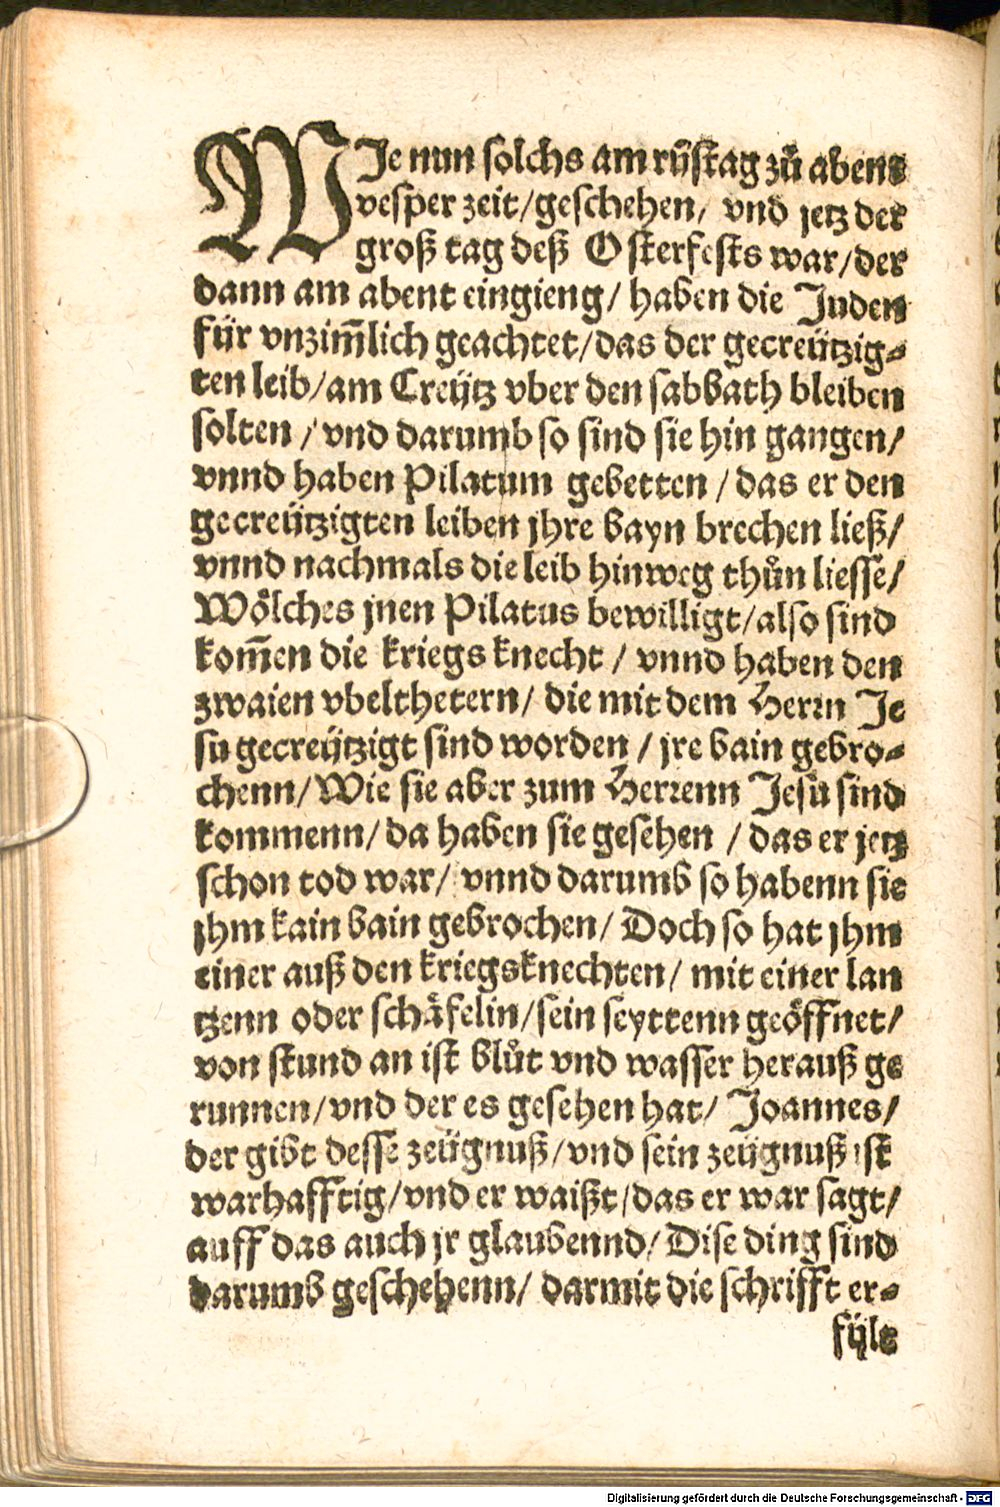 WJe nun solchs am rüstag zů abent
vesper zeit/geschehen/ vnd jetz der
groß tag deß Osterfests war/der
dann am abent eingieng/ haben die Juden
für vnzim̃lich geachtet/das der gecreützig⸗
ten leib/am Creütz vber den sabbath bleiben
solten / vnd darumb so sind sie hin gangen/
vnnd haben Pilatum gebetten / das er den
gecreützigten leiben jhre bayn brechen ließ/
vnnd nachmals die leib hinweg thůn liesse/
Wölches jnen Pilatus bewilligt/also sind
kom̃en die kriegs knecht / vnnd haben den
zwaien vbelthetern/ die mit dem Herrn Je
su gecreützigt sind worden / jre bain gebro⸗
chenn/Wie sie aber zum Herrenn Jesu sind
kommenn/da haben sie gesehen / das er jetz
schon tod war/ vnnd darumb so habenn sie
jhm kain bain gebrochen/ Doch so hat jhm
einer auß den kriegsknechten/ mit einer lan
tzenn oder schäfelin/sein seyttenn geöffnet/
von stund an ist blůt vnd wasser herauß ge
runnen/vnd der es gesehen hat/ Joannes/
der gibt desse zeügnuß/vnd sein zeügnuß ist
warhafftig/vnd er waißt/das er war sagt/
auff das auch jr glaubennd/Dise ding sind
darumb geschehenn/ darmit die schrifft er⸗
fült
Digitalisierung gefördert durch die Deutsche Forschungsgemeinschaft - DFG